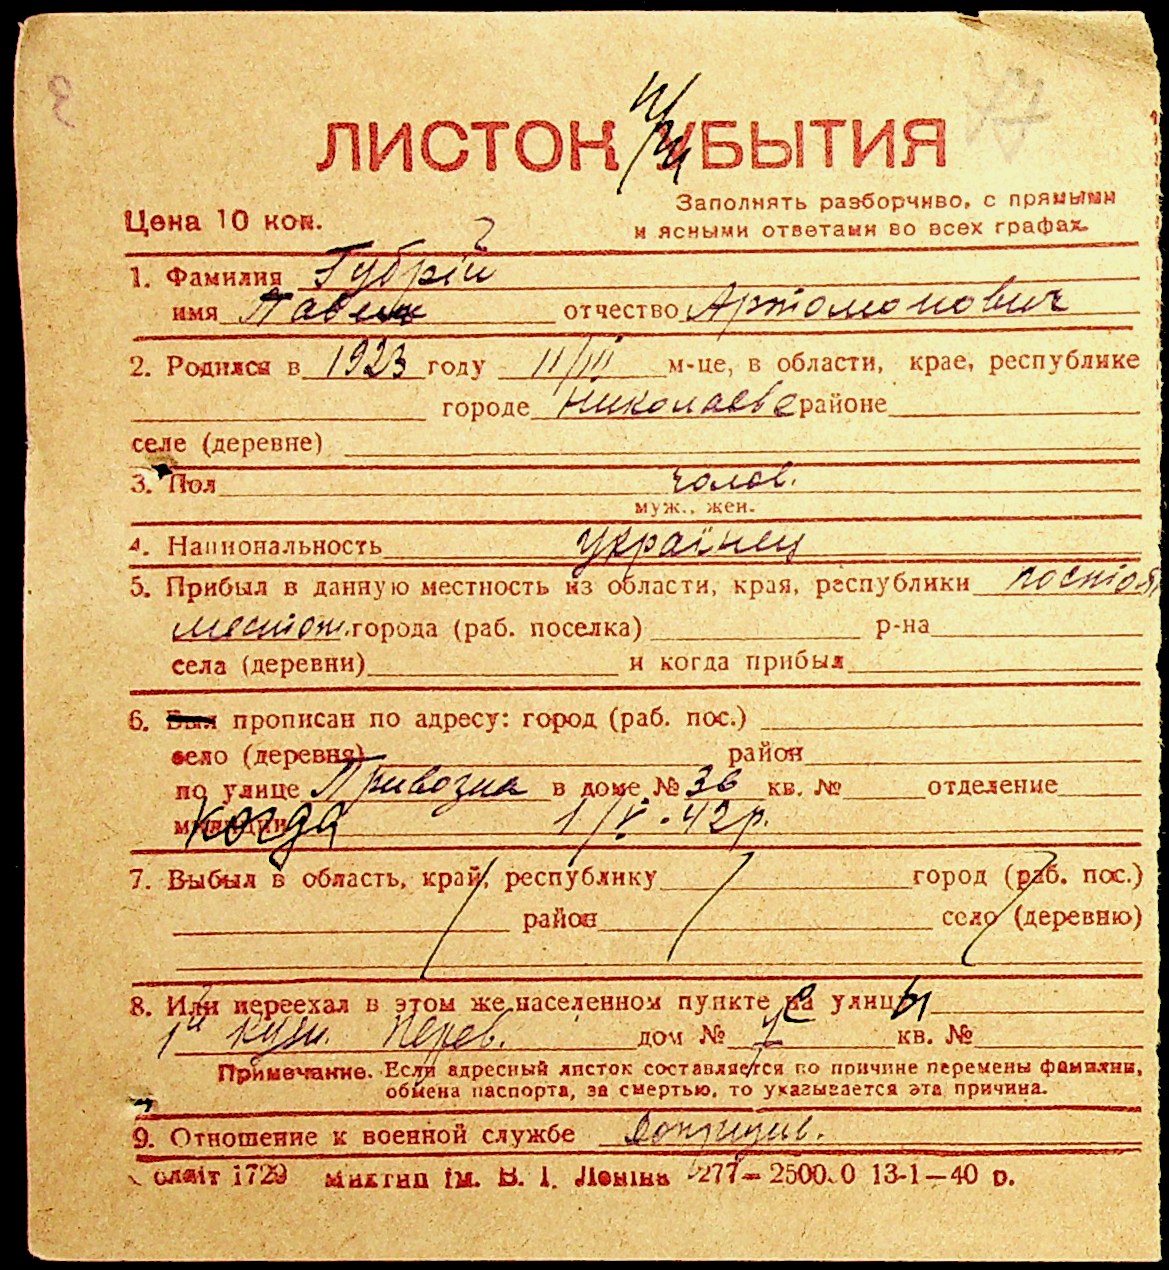 ЛИСТОК УБЫТИЯ
При
Цена 10 коп.
Заполнять разборчиво, с прямыми
и ясными ответами во всех графах.
1. Фамилия Губрій
имя Павел отчество Артомонович
2. Родился в 1923 году 11/III м-це, в области, крае, республике
городе Николаеве районе
селе (деревне)
3. Пол чолов.
муж., жен.
4. Национальность українец
5. Прибыл в данную местность из области, края, республики постоян
местож. города (раб. поселка) р-на
села (деревни) и когда прибыл
6. Был прописан по адресу: город (раб. пос.)
село (деревня) район
по улице Привозна в доме № 36 кв. № отделение
милиции когда 1/V-42р.
7. Выбыл в область, край, республику город (раб. пос.)
район село (деревню)
8. Или переехал в этом же населенном пункте на с улицы
дом № кв. №
Примечание. Если адресный листок составляется по причине перемены фамилии,
обмена паспорта, за смертью, то указывается эта причина.
9. Отношение к военной службе допризив.
1729 ім. В. І. Леніна 277— 13-1—40 р.